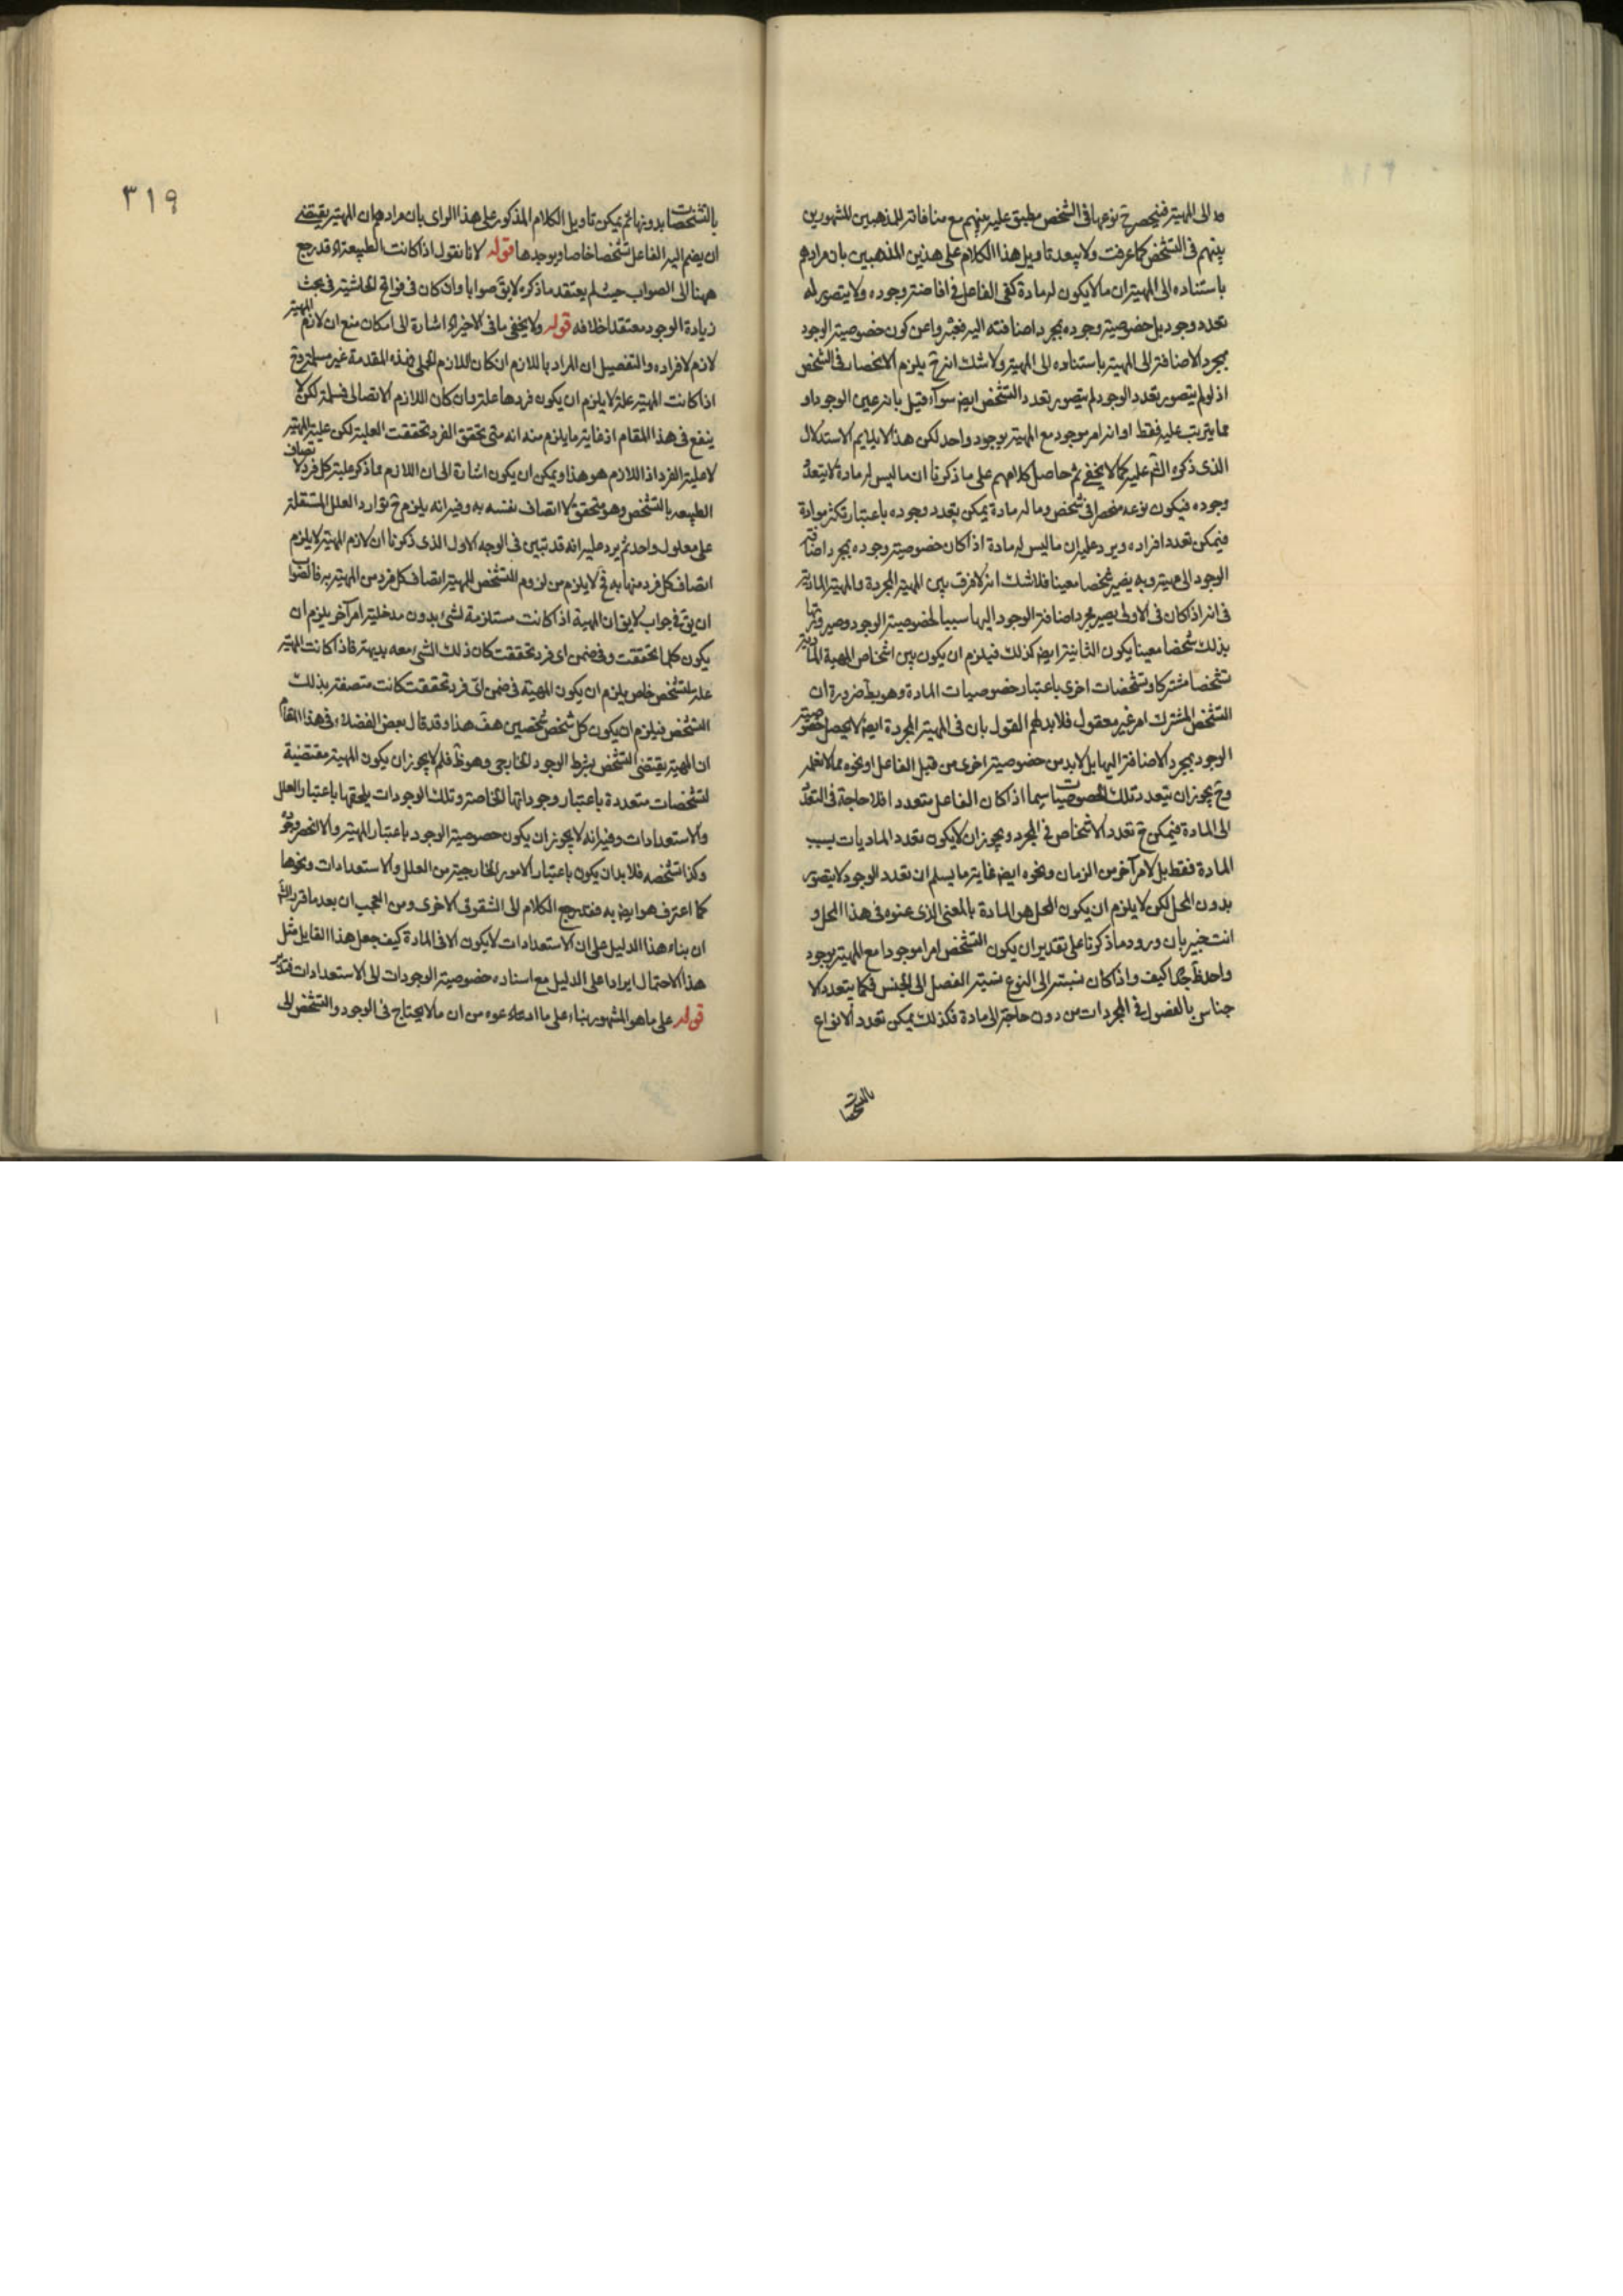 ده الى المهية فينحصر ح نوعها فى الشخص مطبق عليه بينهم مع منافاته للمذهبين المشهورين
بينهم فى التشخص كما عرفت ولا يبعد تاويل هذا الكلام على هذين المذهبين بان مرادهم
باستناده الى المهية ان ما لا يكون له مادة كفى الفاعل فى افاضة وجوده ولا يتصور له
تعدد وجود بل خصوصية وجوده بمجرد اضافته اليه فعبروا عن كون خصوصية الوجود
بمجرد الاضافة الى المهية باستناده الى المهية ولا شك انه ح يلزم الانحصار فى الشخص
اذ لو لم يتصور تعدد الوجود لم يتصور تعدد التشخص ايض سوآء قيل بانه عين الوجود او
مما يترتب عليه فقط او انه امر موجود مع المهية بوجود واحد لكن هذا لا يلايم الاستدلال
الذى ذكره الشم عليه كما لا يخفى ثم حاصل كلامهم على ما ذكرنا ان ما ليس له مادة لا يتعدد
وجوده فيكون نوعه منحصرا فى شخص وما له مادة يمكن تعدد وجوده باعتبار تكثر مواده
فيمكن تعدد افراده ويرد عليه ان ما ليس له مادة اذا كان خصوصية وجوده بمجرد اضافة
الوجود الى مهيته وبه يصير شخصا معينا فلا شك انه لا فرق بين المهية المجردة والمهية المادية
فى انه اذ كان فى الاولى يصير مجرد اضافة الوجود اليها سببا لخصوصية الوجود وصيرورتها
بذلك شخصا معينا يكون الثانية ايض كذلك فيلزم ان يكون بين اشخاص المهية المادية
تشخصا مشتركا وتشخصات اخرى باعتبار خصوصيات المادة وهو بط ضرورة ان
التشخص المشترك امر غير معقول فلا بد لهم القول بان فى المهية المجردة ايض لا يحصل خصوصية
الوجود بمجرد الاضافة اليها بل لا بد من خصوصية اخرى من قبل الفاعل او نحوه مما لا نعلمه
وح يجوز ان يتعدد تلك الخصوصيات سيما اذ كان الفاعل متعددا فلا حاجة فى التعدد
الى المادة فيمكن ح تعدد الاشخاص فى المجرد ويجوز ان لا يكون تعدد الماديات بسبب
المادة فقط بل لامر آخر من الزمان ونحوه ايض غاية ما يسلم ان تعدد الوجود لا يتصور
بدون المحل لكن لا يلزم ان يكون المحل هو المادة بالمعنى الذى عنوه فى هذا المحل و
انت خبير بان ورود ما ذكرنا على تقدير ان يكون التشخص امرا موجودا مع المهية بوجود
واحد ظ جدا كيف واذا كان نسبته الى النوع نسبة الفصل الى الجنس فكما يتعدد الا
جناس بالفصول فى المجردات من دون حاجة الى مادة فكذلك يمكن تعدد الانواع
بالتشخصات
٣١٩
بالتشخصات بدونها ثم يمكن تاويل الكلام المذكور على هذا الراى بان مرادهم ان المهية يقتضى
ان يضم اليه الفاعل تشخصا خاصا ويوجدها قوله لانا نقول اذا كانت الطبيعة اه قد رجع
ههنا الى الصواب حيث لم يعتقد ما ذكره لا بق صوابا وان كان فى فواتح الحاشية فى بحث
زيادة الوجود معتقدا خلافه قوله ولا يخفى ما فى الاخير اه اشارة الى امكان منع ان لازم المهية
لازم لافراده والتفصيل ان المراد باللازم ان كان اللازم الحملى فهذه المقدمة غير مسلمة وح
اذا كانت المهية علة لا يلزم ان يكون فردها علة وان كان اللازم الاتصالى فمسلمة لكن لا
ينفع فى هذا المقام اذ غاية ما يلزم منه انه متى تحقق الفرد تحققت العلية لكن علية المهية
لا علية الفرد اذ اللازم هو هذا ويمكن ان يكون اشارة الى ان اللازم مما ذكر علية كل فرد لاتصاف
الطبيعه بالتشخص وهو متحقق لا اتصاف نفسه به وفيه انه يلزم ح توارد العلل المستقلة
على معلول واحد ثم يرد عليه انه قد تبين فى الوجه الاول الذى ذكرنا ان لازم المهية لا يلزم
اتصاف كل فرد منها به فح لا يلزم من لزوم التشخص للمهية اتصاف كل فرد من المهية به فالصواب
ان يق فى جواب لا يق ان المهية اذ كانت مستلزمة لشئ بدون مدخلية امر آخر يلزم ان
يكون كلما تحققت وفى ضمن اى فرد تحققت كان ذلك الشئ معه بديهة فاذا كانت المهية
علة لتشخص خاص يلزم ان يكون المهية فى ضمن اى فرد تحققت كانت متصفة بذلك
التشخص فيلزم ان يكون كل شخص شخصين هف هذا وقد قال بعض الفضلاء فى هذا المقام
ان المهية يقتضى التشخص بشرط الوجود الخارجى وهو ظ فلم لا يجوز ان يكون المهية مقتضية
لتشخصات متعددة باعتبار وجوداتها الخاصة وتلك الوجودات يلحقها باعتبار العلل
والاستعدادات وفيه انه لا يجوز ان يكون خصوصية الوجود باعتبار المهية والا انحصر وجوده
وكذا تشخصه فلا بد ان يكون باعتبار الامور الخارجية من العلل والاستعدادات ونحوها
كما اعترف هو ايض به فقد رجع الكلام الى الشقوق الاخرى ومن العجب ان بعد ما قرر الشم
ان بناء هذا الدليل على ان الاستعدادات لا يكون الا فى المادة كيف جعل هذا القايل مثل
هذا الاحتمال ايرادا على الدليل مع اسناده خصوصية الوجودات الى الاستعدادات فتدبر
قوله على ما هو المشهور بناء على ما ادعاه عوه من ان ما لا يحتاج فى الوجود والتشخص الى